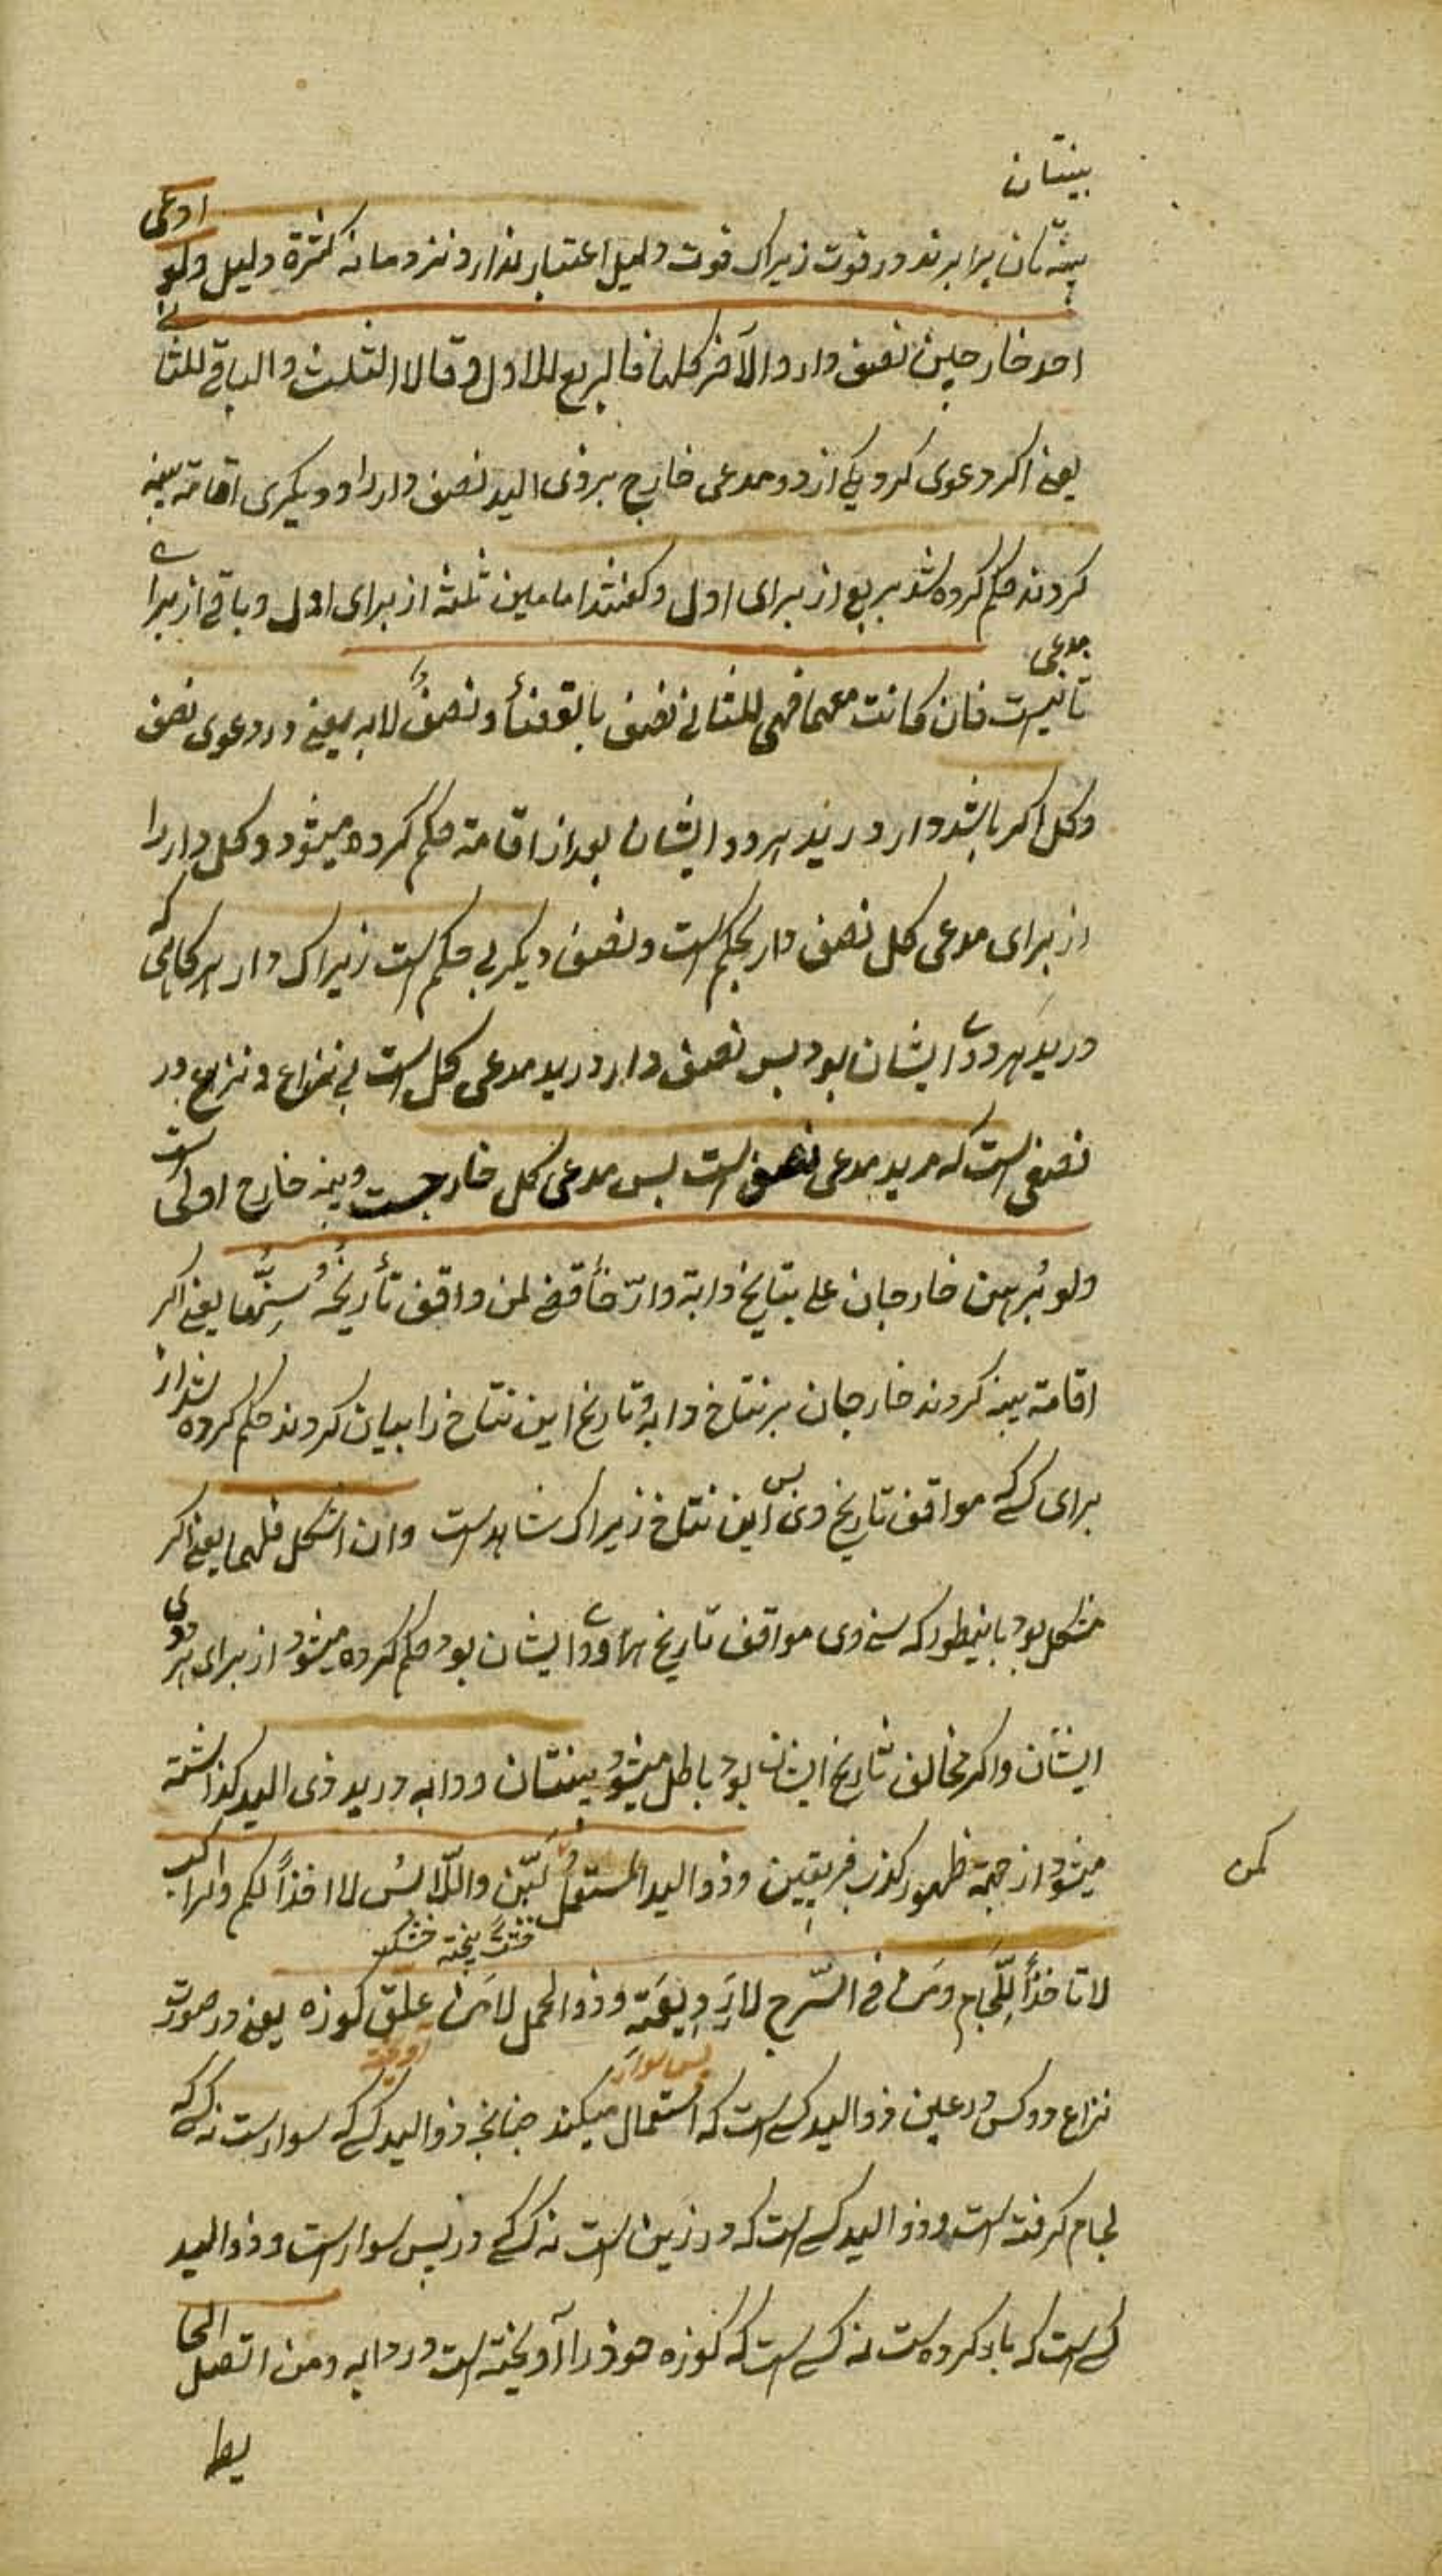 بینتان
بینتان برابرند در قوت زیراک قوت دلیل اعتبار ندارد نزد ما نه کثرة دلیل ولو ادعی
احد خارجین نصف دار والآخر کلها فالربع للاول وقالا الثلث والباقی للثانی
یعنی اکر دعوی کرد یکی از دو مدعی خارج بر ذی الید نصف دار را و دیکری اقامه بینه
کردند حکم کرده شد بربع از برای اول وکفتند امامین ثلثه از برای اول و باقی از برای
ثانیست فان کانت معهما فهی للثانی نصف بالقضأ ونصف لا به یعنی در دعوی نصف
مدعی
وکل اکر باشد دار در ید هر دو ایشان بعد از اقامة حکم کرده میشود وکل دار را
از برای مدعی کل نصف دار بحکم است ونصف دیکر بی حکم است زیراک دار هرکاهی که
در ید هر دوی ایشان بود بس نصف دار در ید مدعی کل است بی نزاع و نزاع در
نصفی است که در ید مدعی نصف است بس مدعی کل خارجست وبینه خارج اولی است
ولو برهن خارجان علی نتایج دابة وارخا قضی لمن وافق تأریخه سنها یعنی اکر
اقامة بینه کردند خارجان بر نتاج دابه و تاریخ این نتاج را بیان کردند حکم کرده شد از
برای کسی که موافق تاریخ وی بس این نتاج زیراک شاهدست وان اشکل فلهما یعنی اکر
مشکل بود باینطور که سنه وی موافق تاریخ هر دوی ایشان بود حکم کرده میشود از برای هر دوی
ایشان واکر مخالف تاریخ ایشان بود باطل میشود بینتان و دابه در ید ذی الید کذاشته
میشود از جهة ظهور کذب فریقین وذو الید المستعمل کمن لبن واللابس لا اخذ الکم والراکب
کمن
لا آخذ اللجام ومن فی السرج لا ردیفه وذو الحمل لا من علق کوزه یعنی در صورت
نزاع دو کس در عین ذوالید کسی است که استعمال میکند جنانجه ذوالید کسی که سوارست نه کسی که
پس سوار
لجام کرفته است و ذوالید کسی است که در زین است نه کسی که در پس سوارست و ذوالید
کسی است که بار کرده است نه کسی است که کوزه خود را آویخته است در دابه ومن اتصل الحا
یط